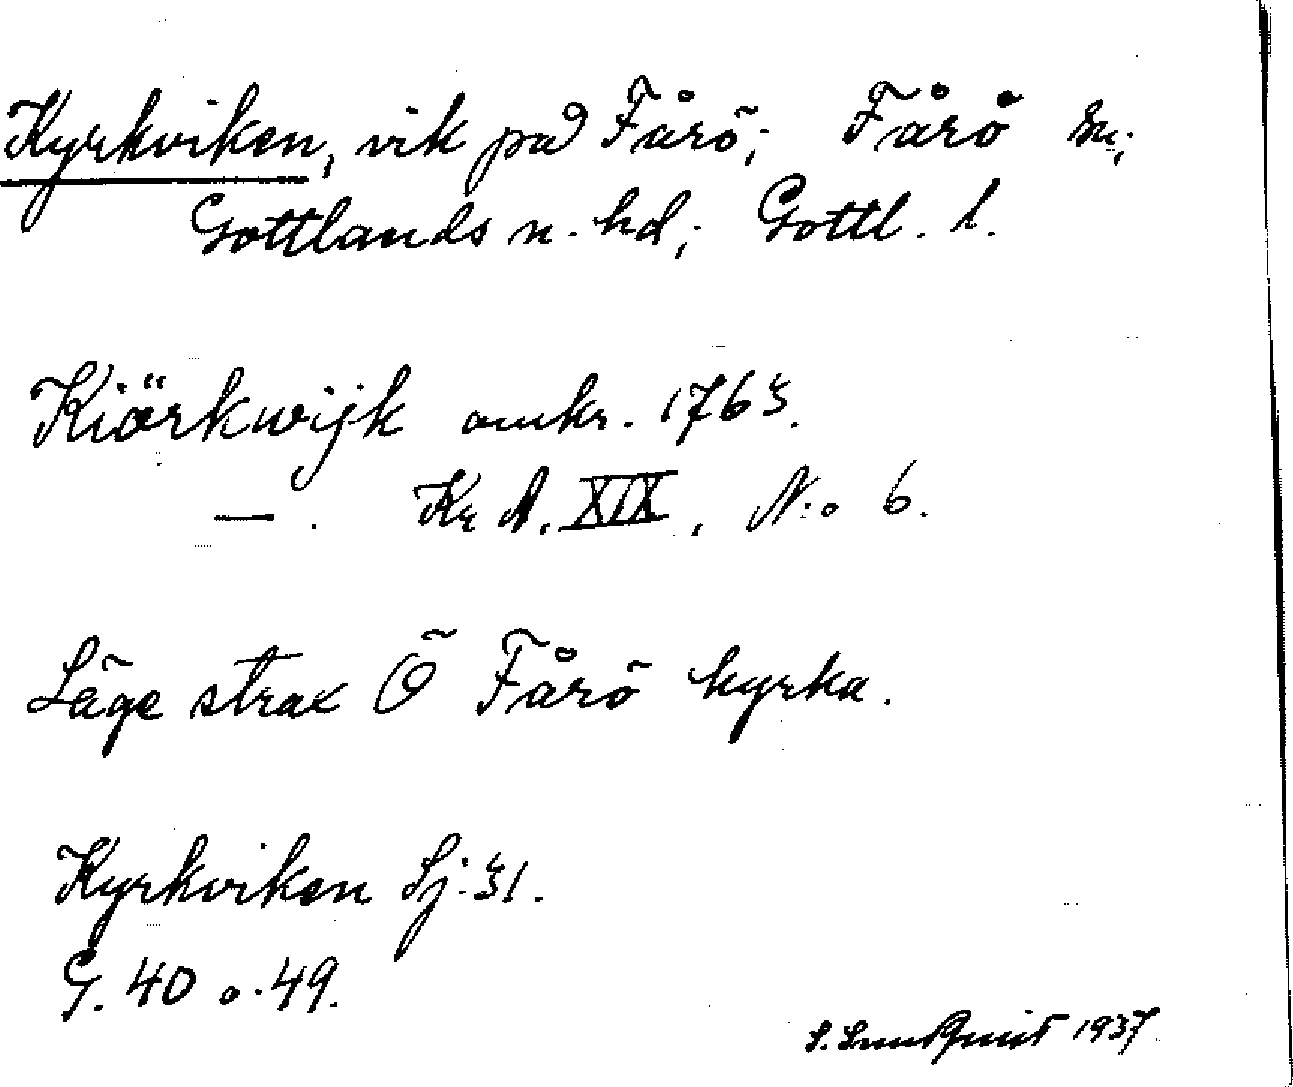 Kyrkviken, vik på Fårö; Fårö sn;
Gottlands n. hd; Gottl. l.
Kiörkwijk omkr. 1763.
— . Kr A. XIX, N:o 6.
Läge strax Ö Fårö kyrka.
Kyrkviken Sj: 31.
G. 40 o. 49.
S. 1937